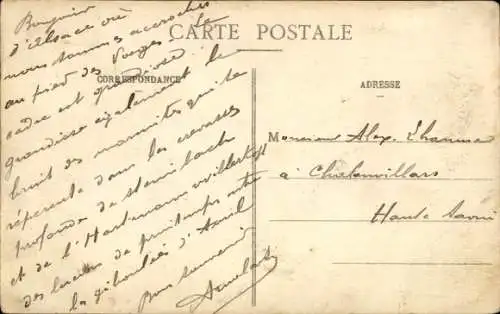 CARTE POSTALE
CORRESPONDANCE
ADRESSE
Bonjour
d'Alsace où
nous sommes accrochés
au pied des Vosges. Le
cadre est grandiose
grandiose également le
bruit des marmites qui se
répercute dans les crevasses
profondes de Steinbach
et de l'Hartmannwillerkopf
des lueurs de printemps entre
les giboulées d'Avril
Bon souvenir
Monsieur Alex. Lhomme
à Chalonvillars
Haute Saône